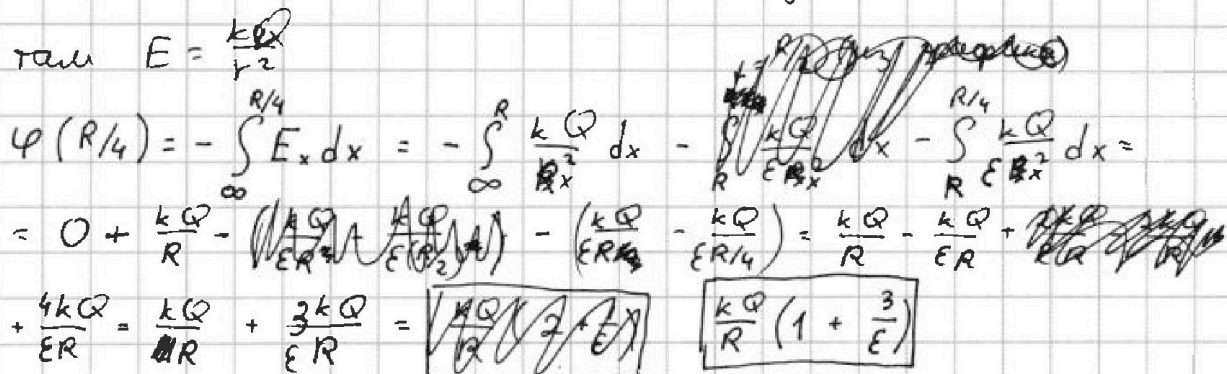 там E = kQ/r²
φ(R/4) = - ∫_∞^{R/4} E_x dx = - ∫_∞^R kQ/x² dx - ∫_R kQ/εx² dx - ∫_R^{R/4} kQ/εx² dx =
= 0 + kQ/R - - (kQ/εR - kQ/(εR/4)) = kQ/R - kQ/εR +
+ 4kQ/εR = kQ/R + 3kQ/εR = kQ/R (1 + 3/ε)